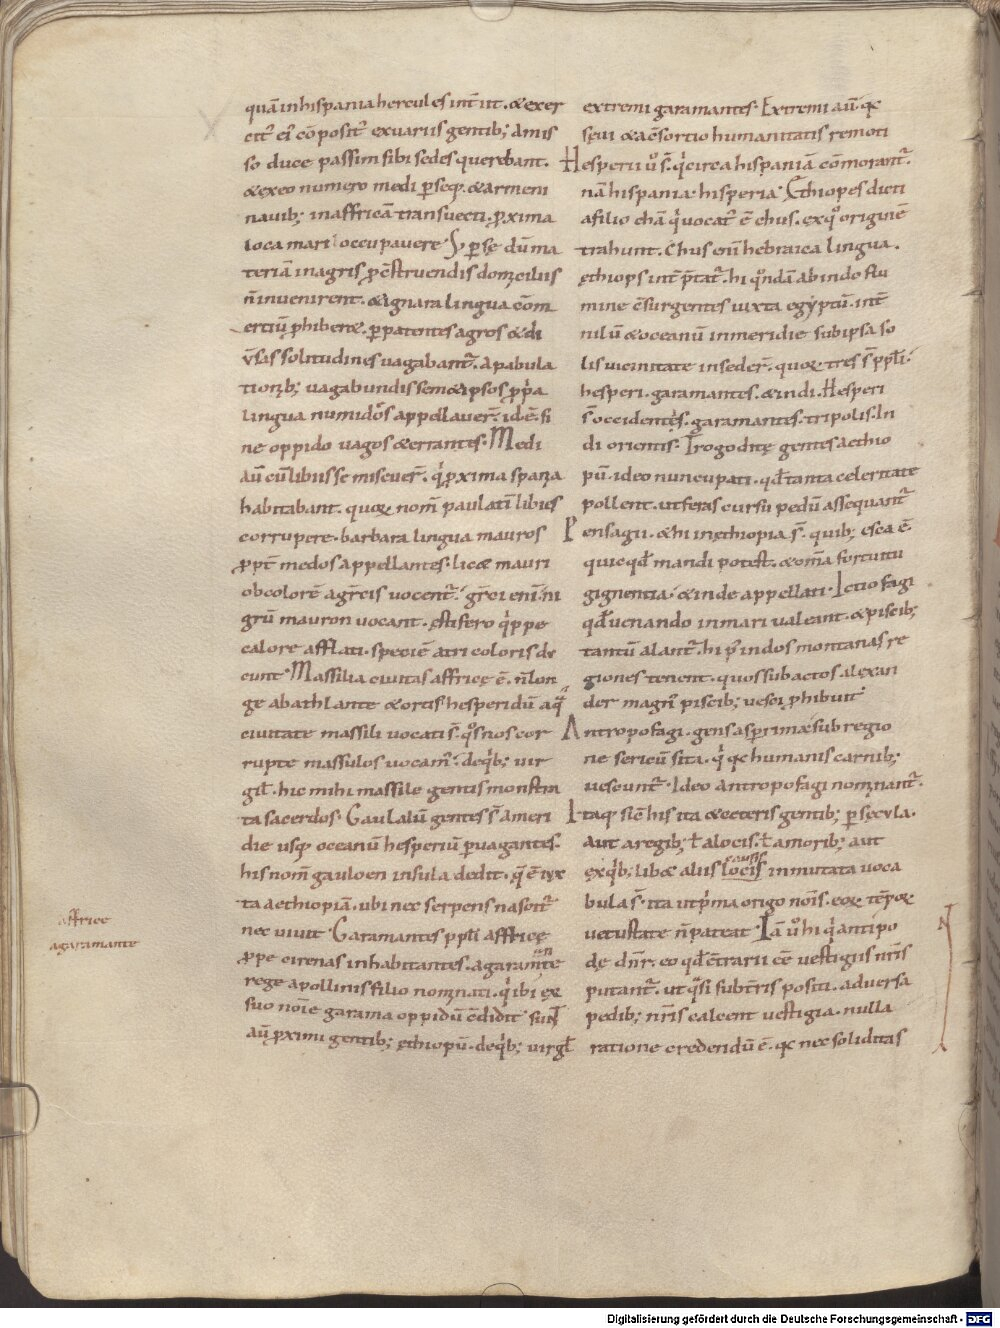 quā in hispania hercules int̄iit. & exer
cit᷒ ei᷒ cōposit᷒ ex uariis gentib; amis
so duce passim sibi sedes querebant.
& ex eo numero medi p̄seq; & armeni
nauib; in affricā transuecti. ꝓxima
loca mari occupauere. S; persę dū ma
teriā in agris ꝓ c̄struendis domiciliis
n̄ inuenirent. & ignara lingua cōm
ertiū ꝓhiberet. ꝑ patentes agros & di
ūsas solitudines uagabant᷒. a pabula
tionib; uagabundis sem& ipsos ꝓpa
lingua numidos appellauer̄. id ē. si
ne oppido uagos & errantes. Medi
aū cū libiis se miscuer̄. q̇ ꝓxima spania
habitabant. quoꝝ nom̄ paulatī libies
corrupere. barbara lingua mauros
ꝓpt̄ medos appellantes. lic& mauri
ob colorē a gr̄cis uocent᷒. gr̄ci enī. ni
grū mauron uocant. ęstifero q̇ppe
calore afflati. speciē atri coloris du
cunt. Massilia ciuitas affricę ē. n̄ lon
ge ab athlante & ortis hesperidū. a q̄
ciuitate massili uocati s̄. q̊s nos cor
rupte massulos uocam᷒. de q̇b; uir
gił. hic mihi massile gentis monstra
ta sacerdos. Gaulalū gentes s̄ a meri
die usq; oceanū hesperiū ꝑuagantes.
his nom̄ gauloen insula dedit. q̄ ē iux
ta aethiopiā. ubi nec serpens nascit᷒
nec uiuit. Garamantes ppłi affricę
ꝓpe cirenas inhabitantes. a garamte
rege apollinis filio nominati. q̇ ibi ex
suo noīe garama oppidū c̄didit. sunt
aū ꝓximi gentib; ęthiopū. de q̇b; uirgł
affrice
agaramante
extremi garamantes. Extremi aū. qc
sęui & a c̄sortio humanitatis remoti
Hesperii u̇ s̄. q̇ circa hispaniā cōmorant᷒.
nā hispania. hisperia. Ethiopes dicti
a filio chā q̇ uocat᷒ ē chus. ex q̊ originē
trahunt. Chus enī hebraica lingua.
ęthiops int̄p̄tat᷒. hi q̊ndā ab indo flu
mine c̄surgentes iuxta egyptū. int̄
nilū & oceanū in meridie sub ipsa so
lis uicinitate inseder̄. quoꝝ tres s̄ ppłi.
hesperi. garamantes. & indi. Hesperi
s̄ occidentes. garamantes. tripolis. In
di orientis. Trogoditę gentes aethio
pū. ideo nuncupati. qđ tanta celeritate
pollent. ut feras cursu pedū assequant᷒
Pensagii. & hi in ęthiopia s̄. quib; esca ē
quicqđ mandi potest. & om̄a fortuitu
gignentia. & inde appellati. Ictiofagi
qđ uenando in mari ualeant. & piscib;
tantū alant᷒. hi p᷒ indos montanas re
giones tenent. quos subactos alexan
der magn᷒ piscib; uesci ꝓhibuit
Antropofagi. gens asperrima sub regio
ne sericū sita. q̇ qc humanis carnib;
uescunt᷒. Ideo antropofagi nominant᷒.
Itaq; sic & his ita & ceteris gentib; ꝑ sęcula.
aut a regib; ł a locis. ł a morib; aut
causis
ex q̇b; lib& aliis locis inmutata uoca
bula s̄. ita ut p̄ma origo nōis. eoꝝ tēpoꝝ
uetustate n̄ pateat. Iā u̇ hi q̇ antipo
dę dn̄r. eo qđ c̄trarii c̄e uestigiis nr̄is
putant᷒. ut q̄si sub tr̄is positi. aduersa
pedib; nr̄is calcent uestigia. nulla
ratione credendū ē. qc nec soliditas
Digitalisierung gefördert durch die Deutsche Forschungsgemeinschaft - DFG